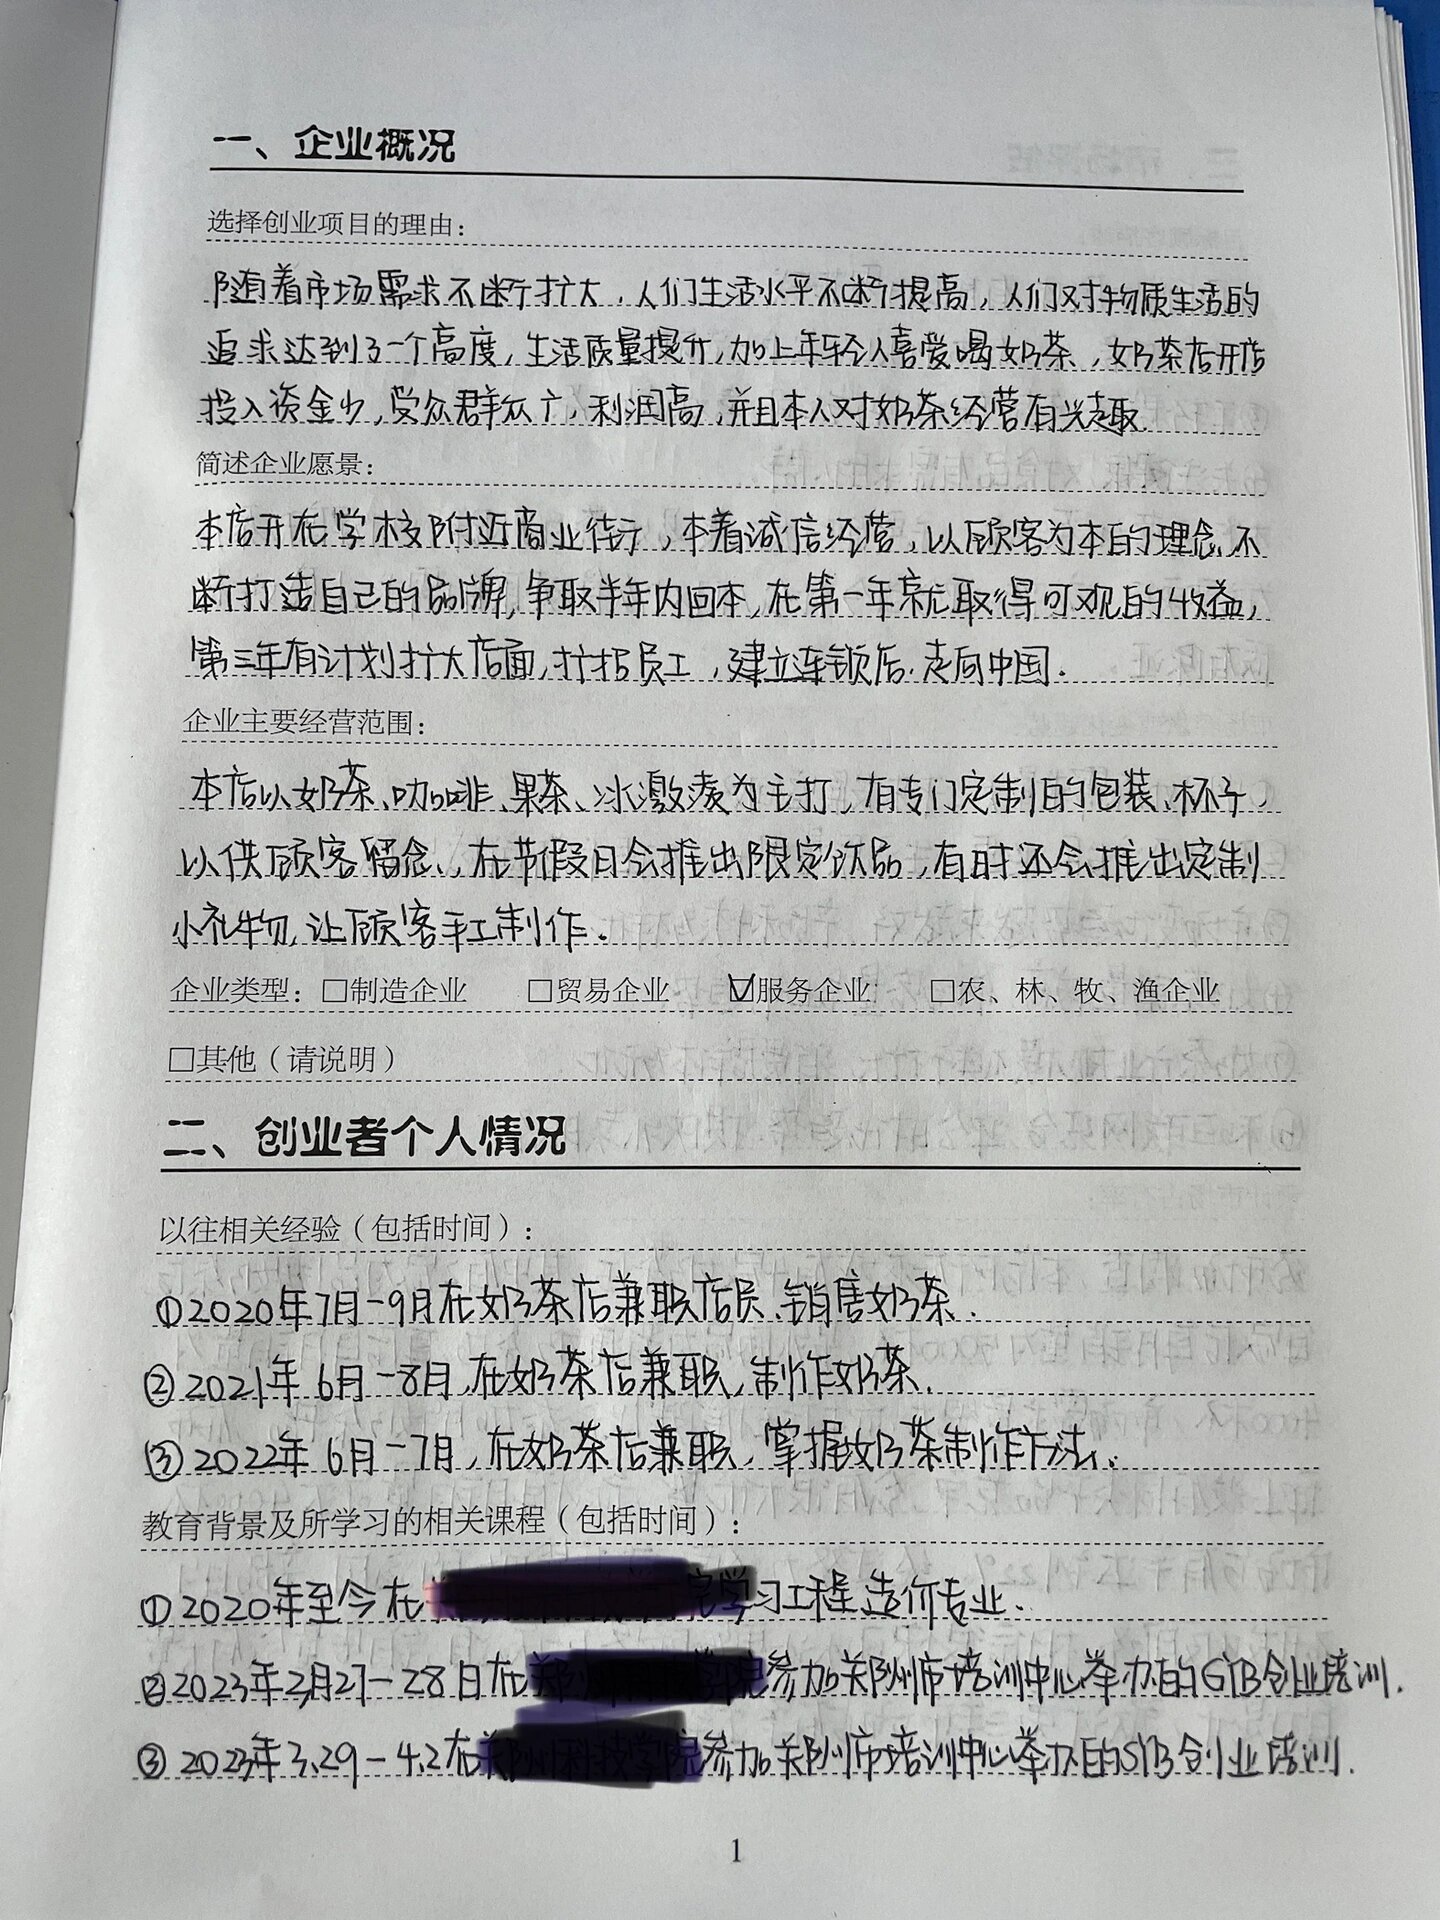 一、企业概况
选择创业项目的理由：
随着市场需求不断扩大，人们生活水平不断提高，人们对物质生活的
追求达到了一个高度，生活质量提升，加上年轻人喜爱喝奶茶，奶茶店开店
投入资金少，受众群众广，利润高，并且本人对奶茶经营有兴趣.
简述企业愿景：
本店开在学校附近商业街，本着诚信经营，以顾客为本的理念、不
断打造自己的品牌，争取半年内回本，在第一年就取得可观的收益，
第三年有计划扩大店面，扩招员工，建立连锁店.走向中国.
企业主要经营范围：
本店以奶茶、咖啡、果茶、冰激凌为主打，有专门定制的包装、杯子，
以供顾客留念，在节假日会推出限定饮品，有时还会推出定制
小礼物，让顾客手工制作.
企业类型：□制造企业 □贸易企业 ☑服务企业 □农、林、牧、渔企业
□其他（请说明）
二、创业者个人情况
以往相关经验（包括时间）：
①2020年7月-9月在奶茶店兼职店员、销售奶茶.
②2021年6月-8月，在奶茶店兼职，制作奶茶.
③2022年6月-7月，在奶茶店兼职，掌握奶茶制作方法.
教育背景及所学习的相关课程（包括时间）：
①2020年至今在 学习工程造价专业.
②2023年2月27-28日在 参加郑州市培训中心举办的GYB创业培训.
③2023年3.29-4.2在 参加郑州市培训中心举办的SYB创业培训.
1